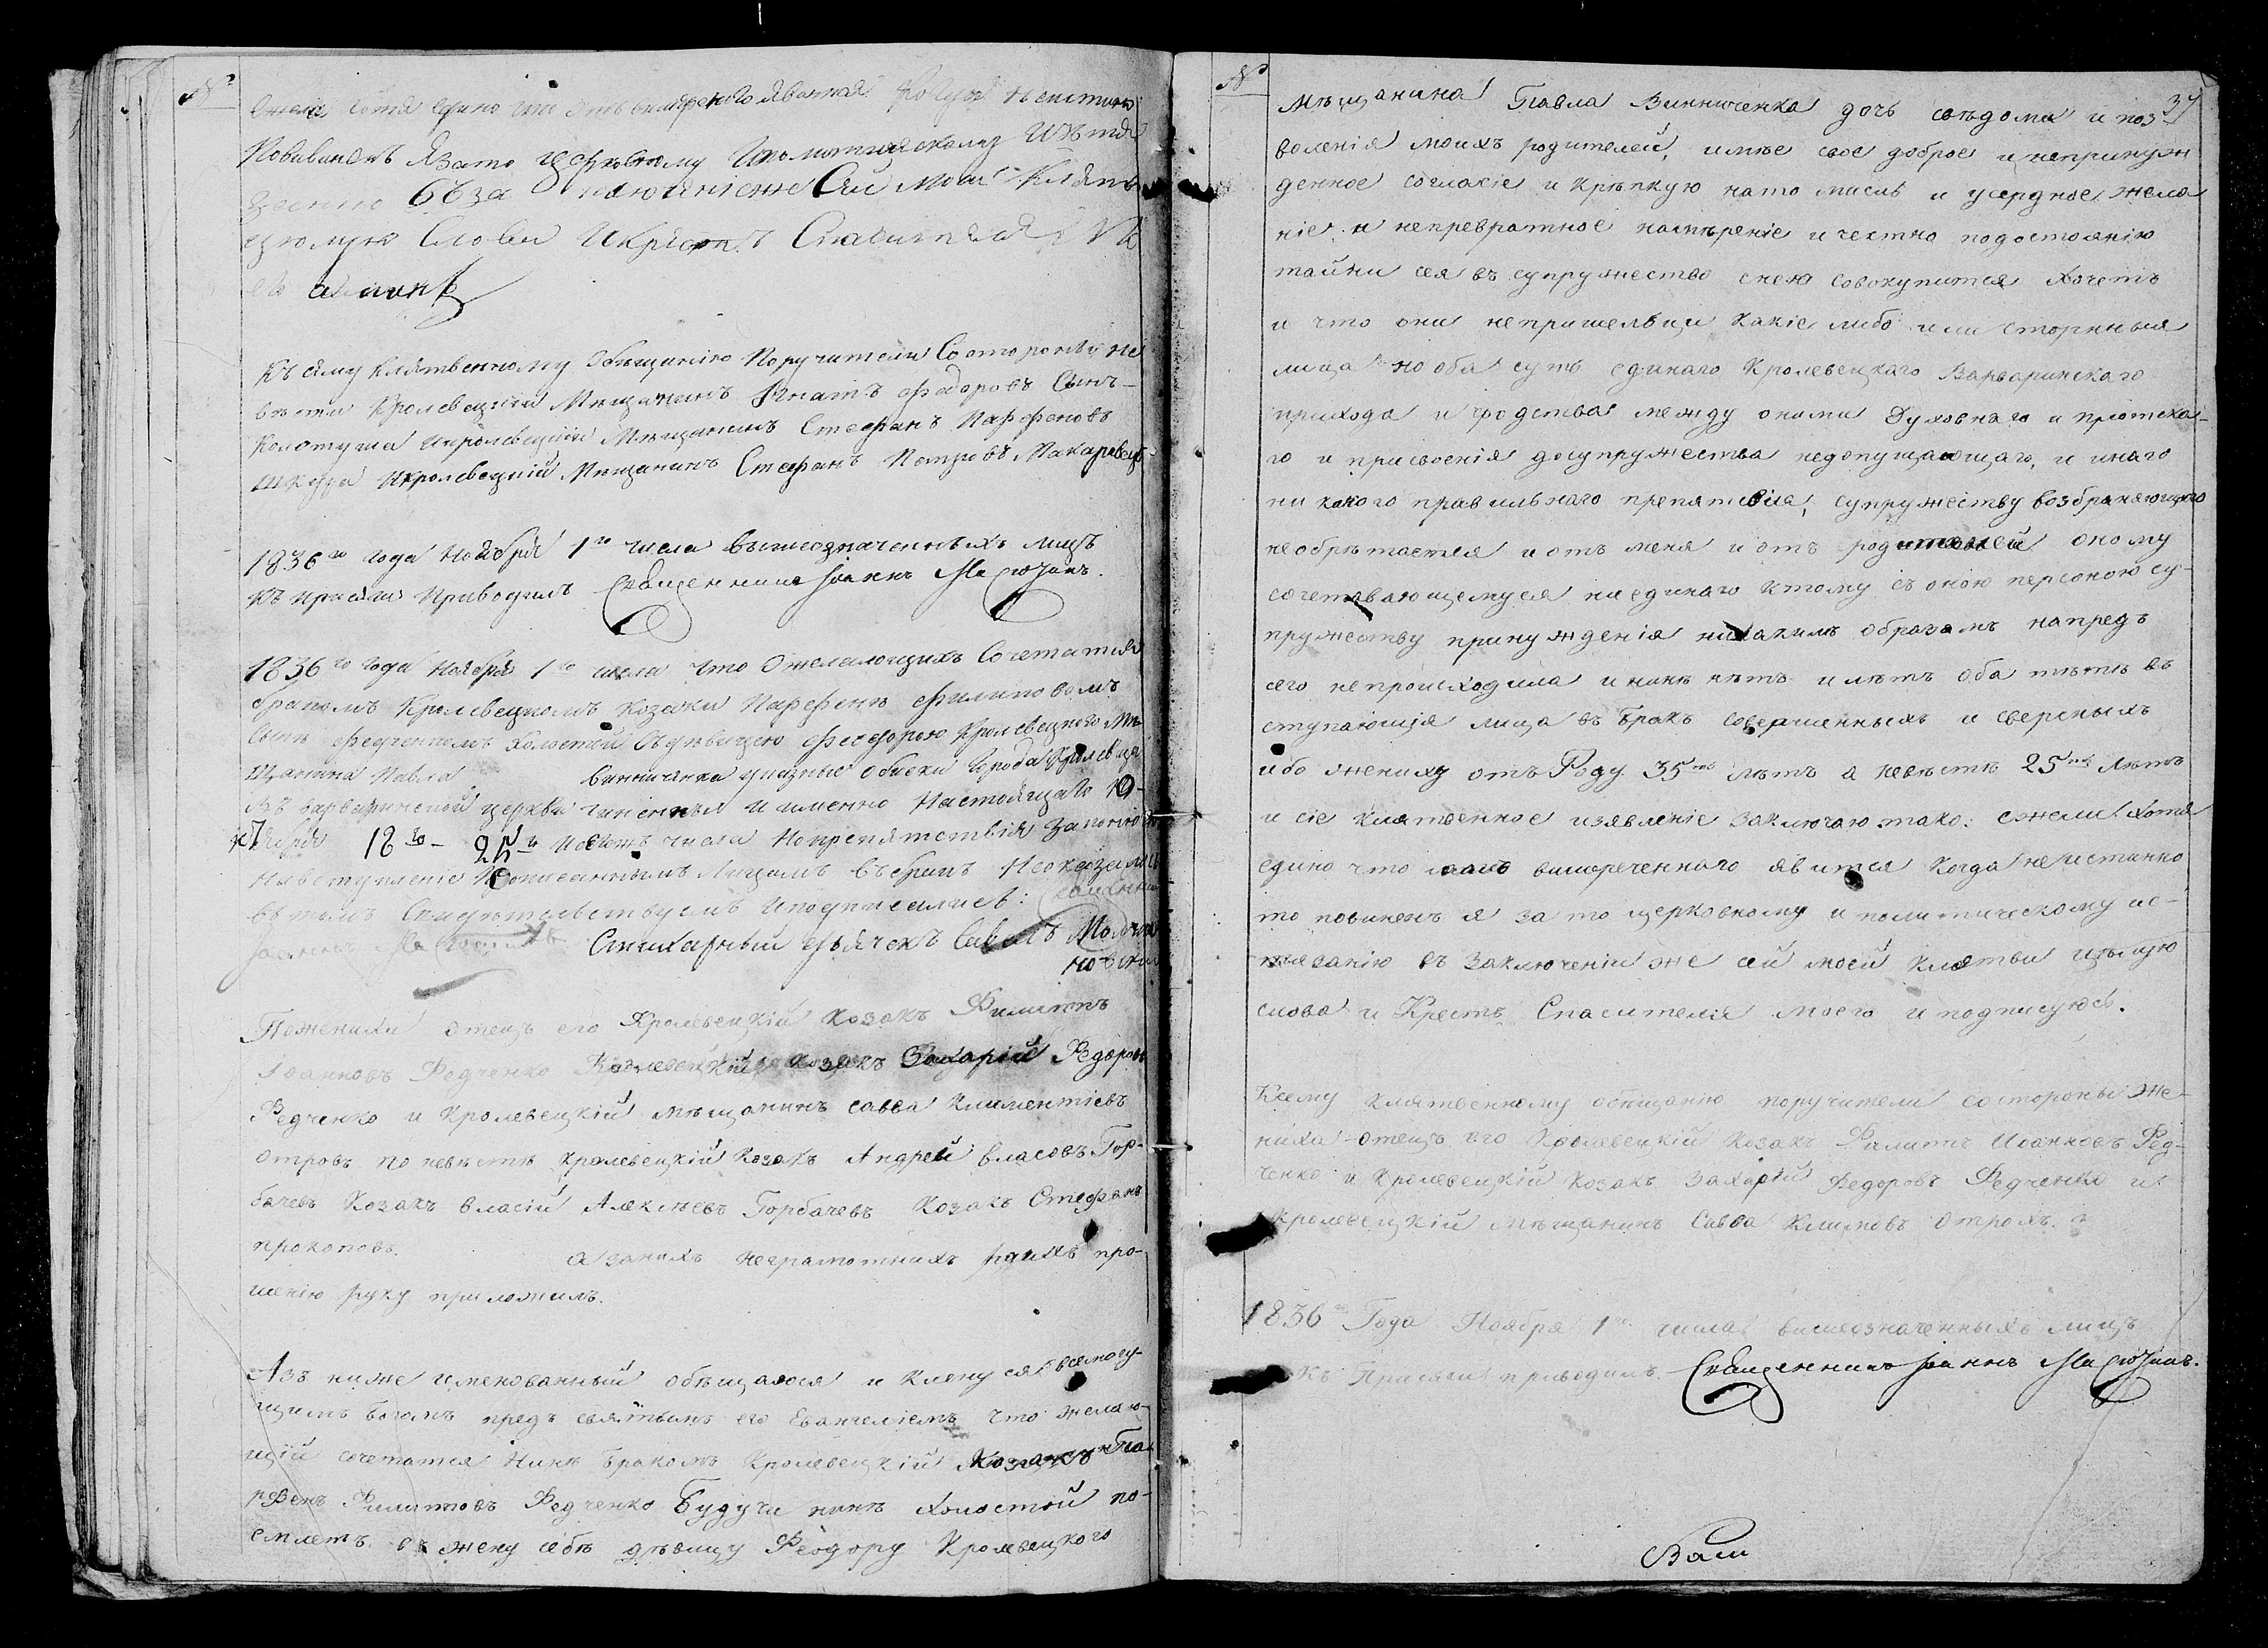 №
ежели хотя едино что отъ вишереченнаго явится когда неистинно
повиненъ я зато церковному и политическому истя
занию въ заключении же сей моей клятвы
целую слова и крестъ Спасителя
аминь
Къ сему клятвенному обѣщанію поручители со стороны не
весты Кролевецкий Мещанинъ Игнатъ Федоровъ Сынъ
Колотуша и Кролевецкий Мещанинъ Стефанъ Парфеновъ
Шкура и Кролевецкий Мещанинъ Стефанъ Петровъ Макаревец
1836го года Ноября 1го числа вышеозначенныхъ лицъ
къ присяги приводилъ Священникъ Іоаннъ
1836го года Ноября 1го числа что о желающихъ сочетатся
бракомъ Кролевецкомъ Козаки Парфенъ Филиповомъ
сынъ Федченкомъ холостой съ дѣвицею Феодорою Кролевецкого Мѣ
щанина Павла Винниченка указные обиски города Кролевца
въ варваринской церкви чиненны и именно настоящаго О-
ктября 18го - 25го числа но препятствія законного
на вступленіе прописаннымъ лицамъ въ бракъ не оказалось
въ томъ свидѣтельствуемъ и подписались:
Іоаннъ Стихарный дьячекъ
По женихи отецъ его Кролевецкій козакъ Филиппъ
Іоанновъ Федченко Кролевецкій козакъ Захарій Федоровъ
Федченко и Кролевецкій мѣщанинъ савва Климентіевъ
Отрохъ по невѣстѣ Кролевецкій козакъ Андрей власовъ Гор-
бачевъ козакъ власій Алексѣевъ Горбачевъ козакъ Стефанъ
прокоповъ. а занихъ неграмотнихъ поихъ про-
шенію руку приложилъ.
Азъ ниже именованный обѣщаюся и кленуся всемогу-
щимъ богомъ предъ святымъ его Евангеліемъ что желаю-
щій сочетатся нинѣ бракомъ Кролевецкій козакъ Пар-
фенъ Филиповъ Федченко Будучи нинѣ холостой по-
емлетъ въ жену себѣ дѣвицу Феодору Кролевецкого
№
37
Мѣщанина Павла Винниченка дочь свѣдома и поз
воленія моихъ родителей, имѣе свое доброе и непринуж
денное согласіе и крѣпкую на то мисль и усердное жела
ніе и непревратное намѣреніе и честно по достоянію
тайни сея въ супружество снею совокупится хочетъ
и что они непришельци какіе либо или сторннія
лица но оба суть единаго Кролевецкаго Варваринскаго
прихода и сродства между оними Духовнаго и плотска-
го и присвоенія до супружества недопущающаго, и инаго
ни какого правильнаго препятсвія, супружеству возбраняющаго
необрѣтается и отъ меня и отъ родителей оному
сочетавающемуся ни единаго ктому съ оною персоною су-
пружеству принужденія никакимъ образамъ напредъ
сего непроисходила и нинѣ нѣтъ и лѣтъ оба тѣмъ в
ступающія лица въ Бракъ совершенныхъ и сверсныхъ
ибо жениху отъ Роду 35ть лѣтъ а невѣстѣ 25ть лѣтъ
и сіе клятвенное изявленіе заключаю тако: ежели хотя
едино что отъ вишереченного явится когда неистинно
то повиненъ я за то церковному и политическому ис-
тязанію въ заключеніи же сей моей клятви цѣлую
слова и Крестъ Спасителя моего и подписуюсь.
Ксему клятвенному обѣщанію поручители состороны же-
ниха отецъ его Кролевецкій Козакъ Филиппъ Иоанновъ Фед-
ченко и Кролевецкій Козакъ Захарій Федоровъ Федченко и
Кролевецкій мѣщанинъ Савва Климовъ Отрохъ.
1836го Года Ноября 1го числа вишеозначенныхъ лицъ
къ Присяги приводилъ Священникъ Іоаннъ